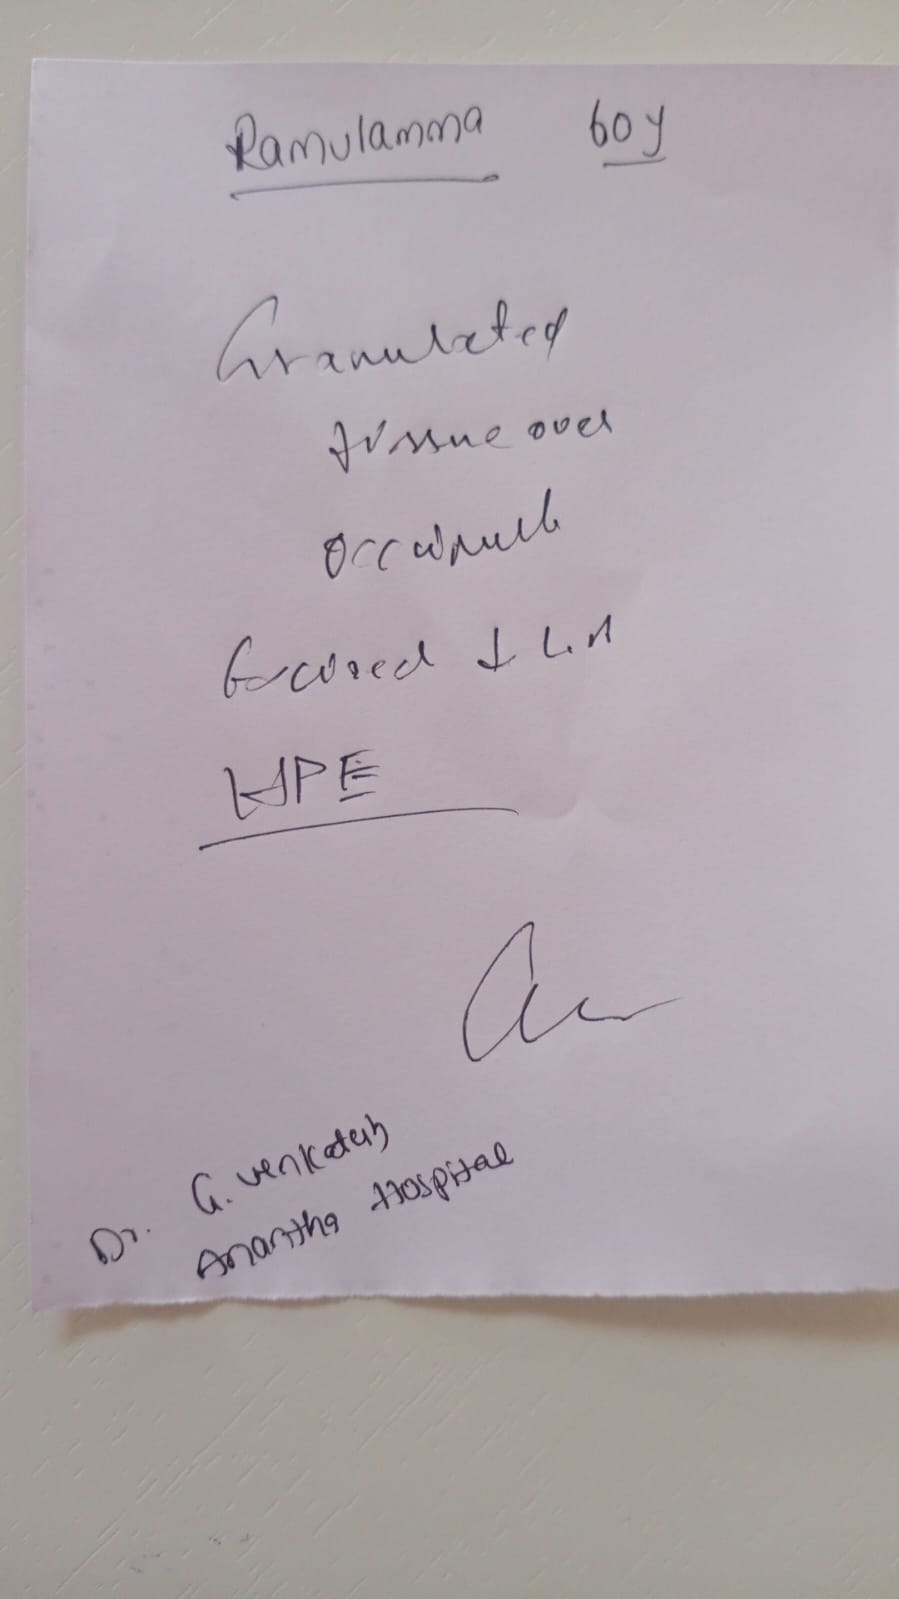 Ramulamma 60y
Granulated
tissue over
Excised
HPE
Dr. G. Venkatesh
Anantha Hospital